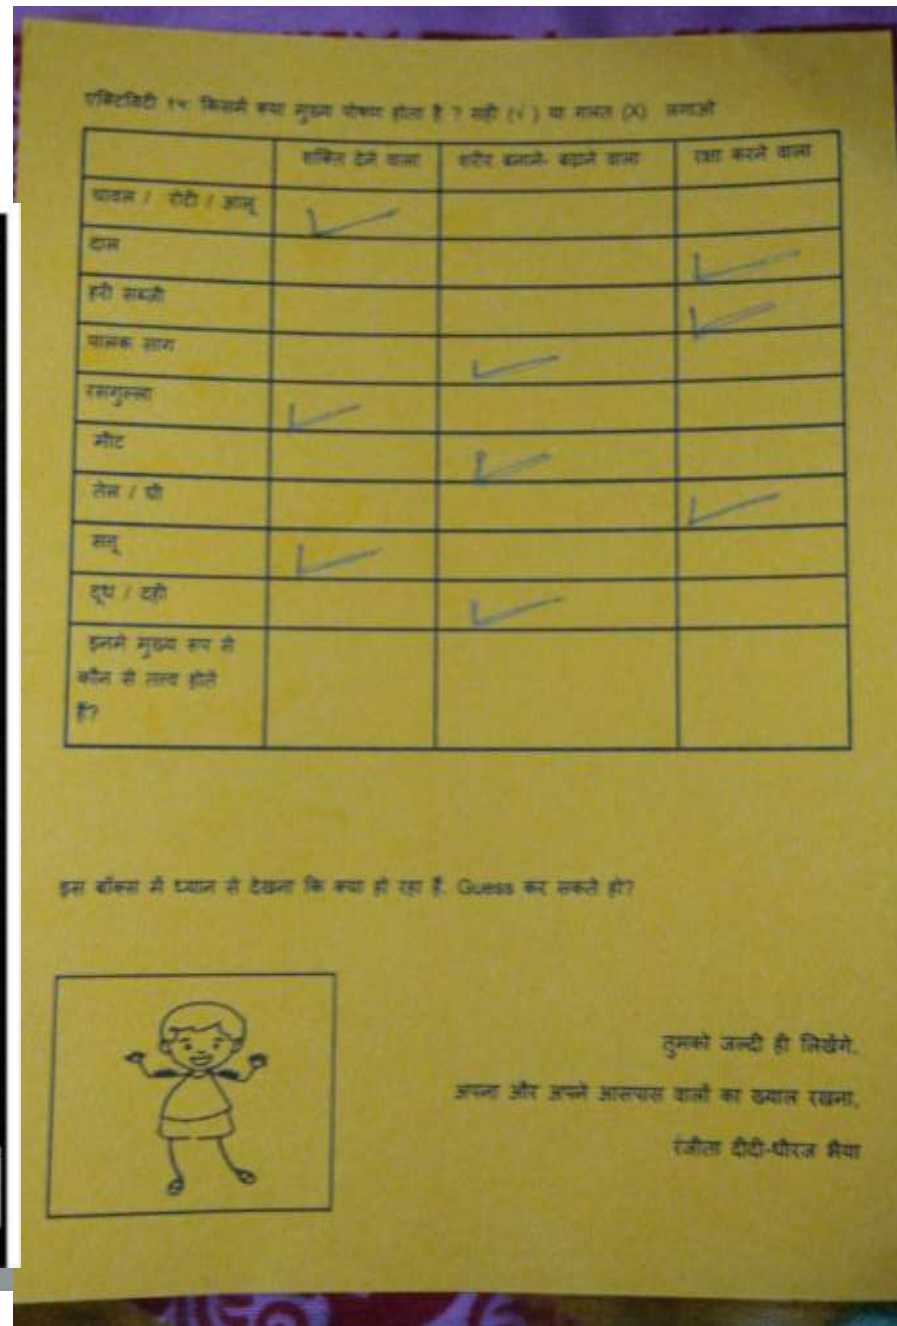 एक्टिविटी १५ किसमें क्या मुख्य पोषण होता है ? सही (√ ) या गलत (X) लगाओ
शक्ति देने वाला शरीर बनाने- बढ़ाने वाला रक्षा करने वाला
चावल / रोटी / आलू ✓
दाल ✓
हरी सब्ज़ी ✓
पालक साग ✓
रसगुल्ला ✓
मीट ✓
तेल / घी ✓
सत्तू ✓
दूध / दही ✓
इनमे मुख्य रूप से
कौन से तत्व होते
हैं?
इस बॉक्स में ध्यान से देखना कि क्या हो रहा है. Guess कर सकते हो?
तुमको जल्दी ही लिखेंगे.
अपना और अपने आसपास वालों का ख्याल रखना,
रंजीता दीदी-धीरज भैया